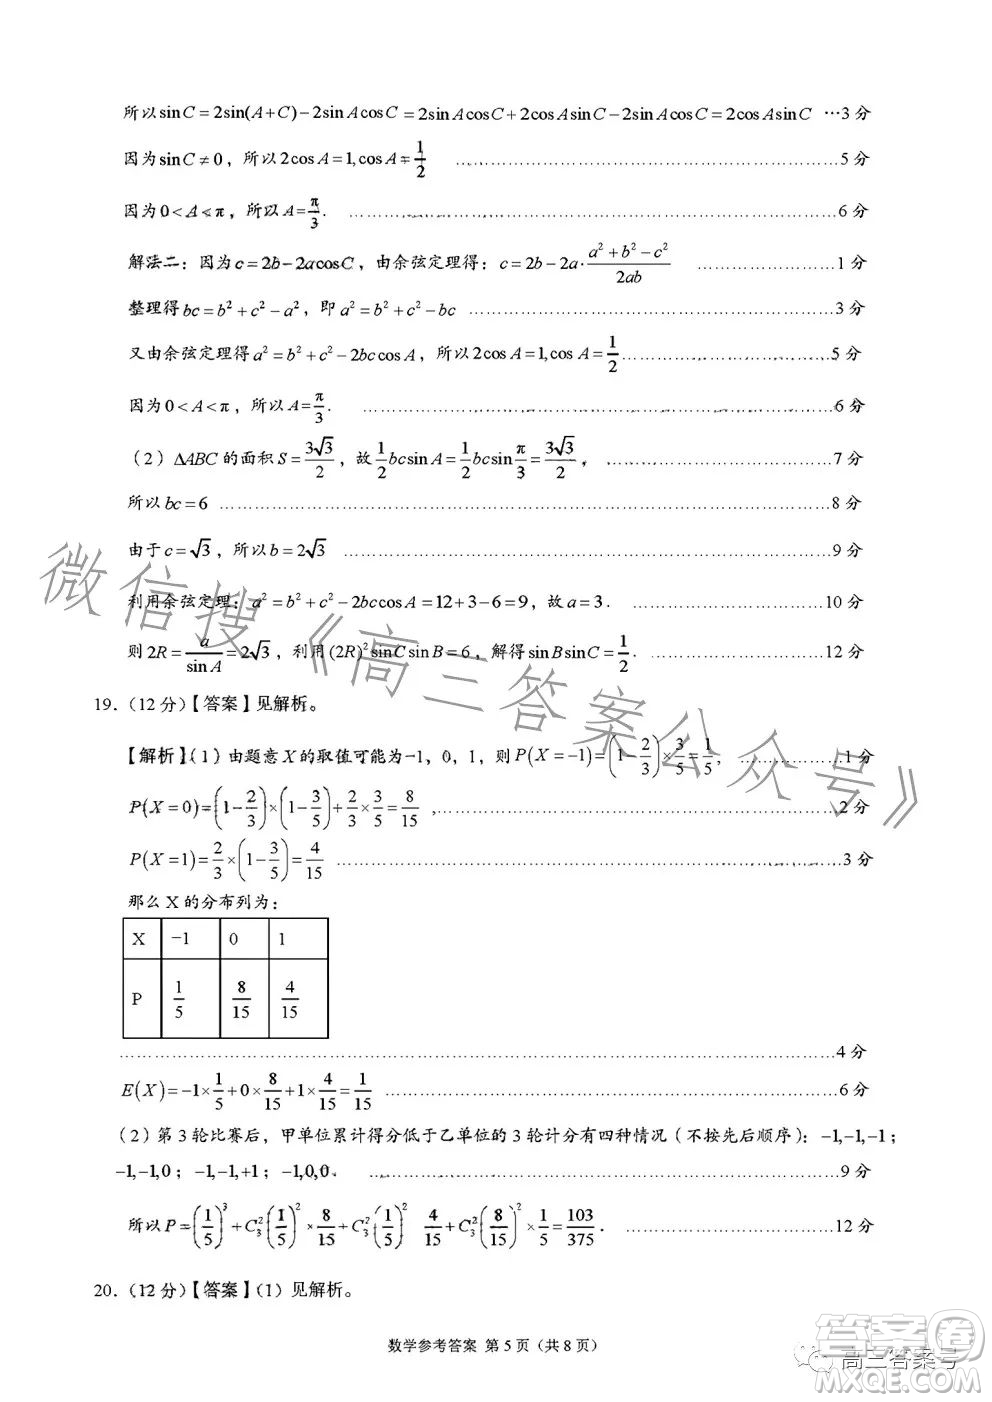 所以 sinC = 2sin(A+C) − 2sinAcosC = 2sinAcosC + 2cosAsinC − 2sinAcosC = 2cosAsinC …3分
因为 sinC ≠ 0，所以 2cosA = 1, cosA = 1/2 ……5分
因为 0 < A < π，所以 A = π/3. ……6分
解法二：因为 c = 2b − 2acosC，由余弦定理得：c = 2b − 2a·(a²+b²−c²)/(2ab) ……1分
整理得 bc = b² + c² − a²，即 a² = b² + c² − bc ……3分
又由余弦定理得 a² = b² + c² − 2bccosA，所以 2cosA = 1, cosA = 1/2 ……5分
因为 0 < A < π，所以 A = π/3. ……6分
（2）ΔABC 的面积 S = 3√3/2，故 1/2 bcsinA = 1/2 bcsin π/3 = 3√3/2， ……7分
所以 bc = 6 ……8分
由于 c = √3，所以 b = 2√3 ……9分
利用余弦定理：a² = b² + c² − 2bccosA = 12 + 3 − 6 = 9，故 a = 3. ……10分
则 2R = a/sinA = 2√3，利用 (2R)² sinCsinB = 6，解得 sinBsinC = 1/2. ……12分
19.（12分）【答案】见解析。
【解析】（1）由题意 X 的取值可能为−1，0，1，则 P(X = −1) = (1 − 2/3) × 3/5 = 1/5， ……1分
P(X = 0) = (1 − 2/3) × (1 − 3/5) + 2/3 × 3/5 = 8/15 ，……2分
P(X = 1) = 2/3 × (1 − 3/5) = 4/15 ……3分
那么 X 的分布列为：
X −1 0 1
P 1/5 8/15 4/15
……4分
E(X) = −1 × 1/5 + 0 × 8/15 + 1 × 4/15 = 1/15 ……6分
（2）第 3 轮比赛后，甲单位累计得分低于乙单位的 3 轮计分有四种情况（不按先后顺序）：−1,−1,−1；
−1,−1,0；−1,−1,+1；−1,0,0. ……9分
所以 P = (1/5)³ + C₃²(1/5)² × 8/15 + C₃²(1/5)² 4/15 + C₃²(8/15)² × 1/5 = 103/375. ……12分
20.（12分）【答案】（1）见解析。
数学参考答案 第 5 页（共 8 页）
微信搜《高三答案公众号》
高三答案号
答案圈
MXQE.COM